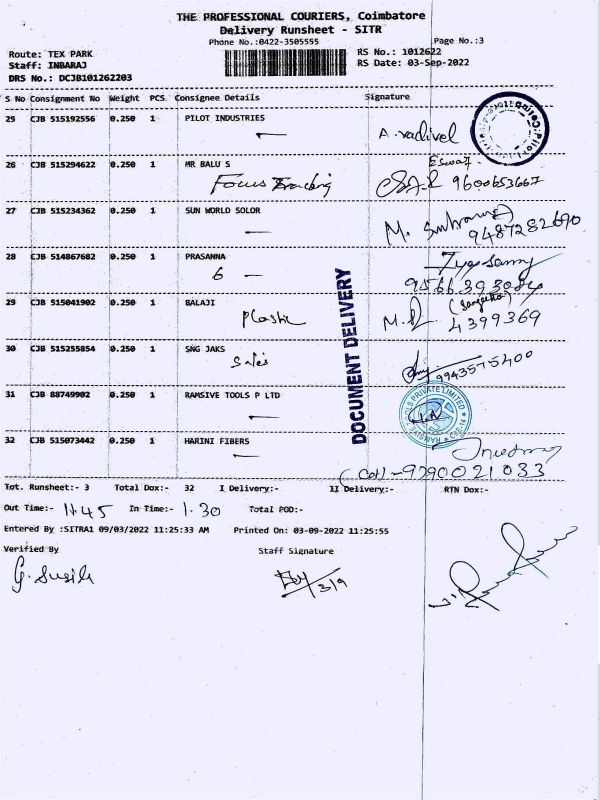 THE PROFESSIONAL COURIERS, Coimbatore
Delivery Runsheet - SITR
Phone No.:0422-3505555 Page No.:3
Route: TEX PARK RS No.: 1012622
Staff: INBARAJ RS Date: 03-Sep-2022
DRS No.: DCJB101262203
S No Consignment No Weight PCS Consignee Details Signature
25 CJB 515192556 0.250 1 PILOT INDUSTRIES
A. vadivel
26 CJB 515294622 0.250 1 MR BALU S
Focus 9600653667
27 CJB 515234362 0.250 1 SUN WORLD SOLOR
M. 9487282690
28 CJB 514867682 0.250 1 PRASANNA
6 -
29 CJB 515041902 0.250 1 BALAJI
Plastic 4399369
30 CJB 515255854 0.250 1 SNG JAKS
Sales 9943575400
31 CJB 88749902 0.250 1 RAMSIVE TOOLS P LTD
32 CJB 515073442 0.250 1 HARINI FIBERS
9290021033
DOCUMENT DELIVERY
Tot. Runsheet:- 3 Total Dox:- 32 I Delivery:- II Delivery:- RTN Dox:-
Out Time:- 11.45 In Time:- 1.30 Total POD:-
Entered By :SITRA1 09/03/2022 11:25:33 AM Printed On: 03-09-2022 11:25:55
Verified By Staff Signature
G. Susila 3/9